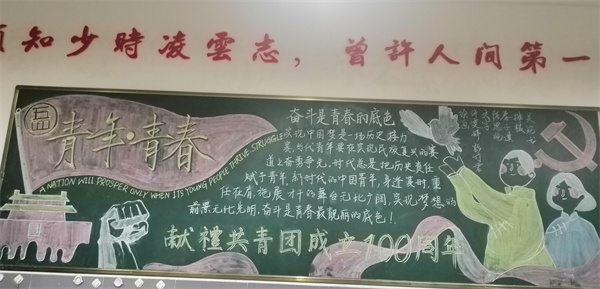 须知少時凌雲志，曾許人间第一
五四
青年·青春
A NATION WILL PROSPER ONLY WHEN ITS YOUNG PEOPLE THRIVE STRUGGLE
奋斗是青春的底色
实现中国梦是一场历史接力
赛,当代青年要在实现民族复兴的赛
道上奋勇争先。时代总是把历史责任
赋予青年.新时代的中国青年,身逢其时,重
任在肩,施展才干的舞台无比广阔,实现梦想的
前景无比光明.奋斗是青春最靓丽的底色!
献禮共青团成立100周年